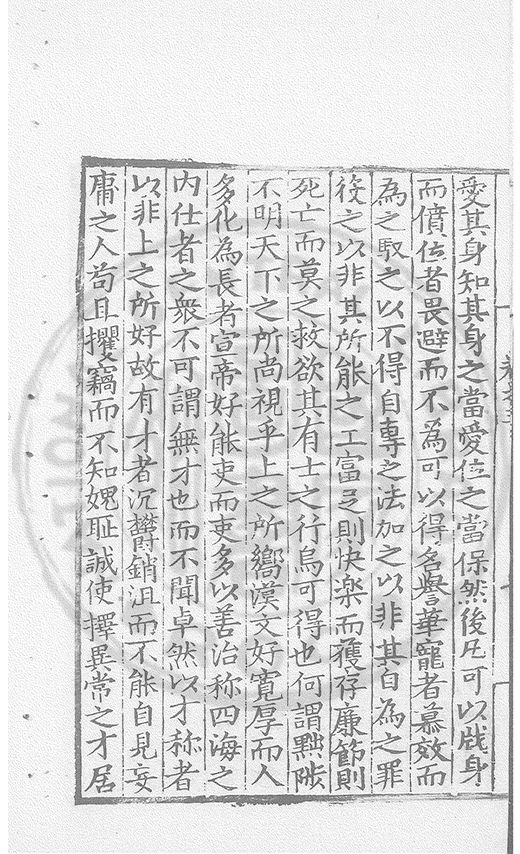 愛其身知其身之當愛位之當保然後凡可以戕身
而僨位者畏避而不爲可以得名譽華寵者慕效而
為之馭之以不得自專之法加之以非其自為之罪
役之以非其所能之工富足則快楽而獲存廉節則
死亡而莫之救欲其有士之行烏可得也何謂黜陟
不明天下之所尚視乎上之所嚮漢文好寛厚而人
多化為長者宣帝好能吏而吏多以善治称四海之
内仕者之衆不可謂無才也而不聞卓然以才称者
以非上之所好故有才者沉欝銷沮而不能自見妄
庸之人苟且攫竊而不知媿耻誠使擇異常之才居